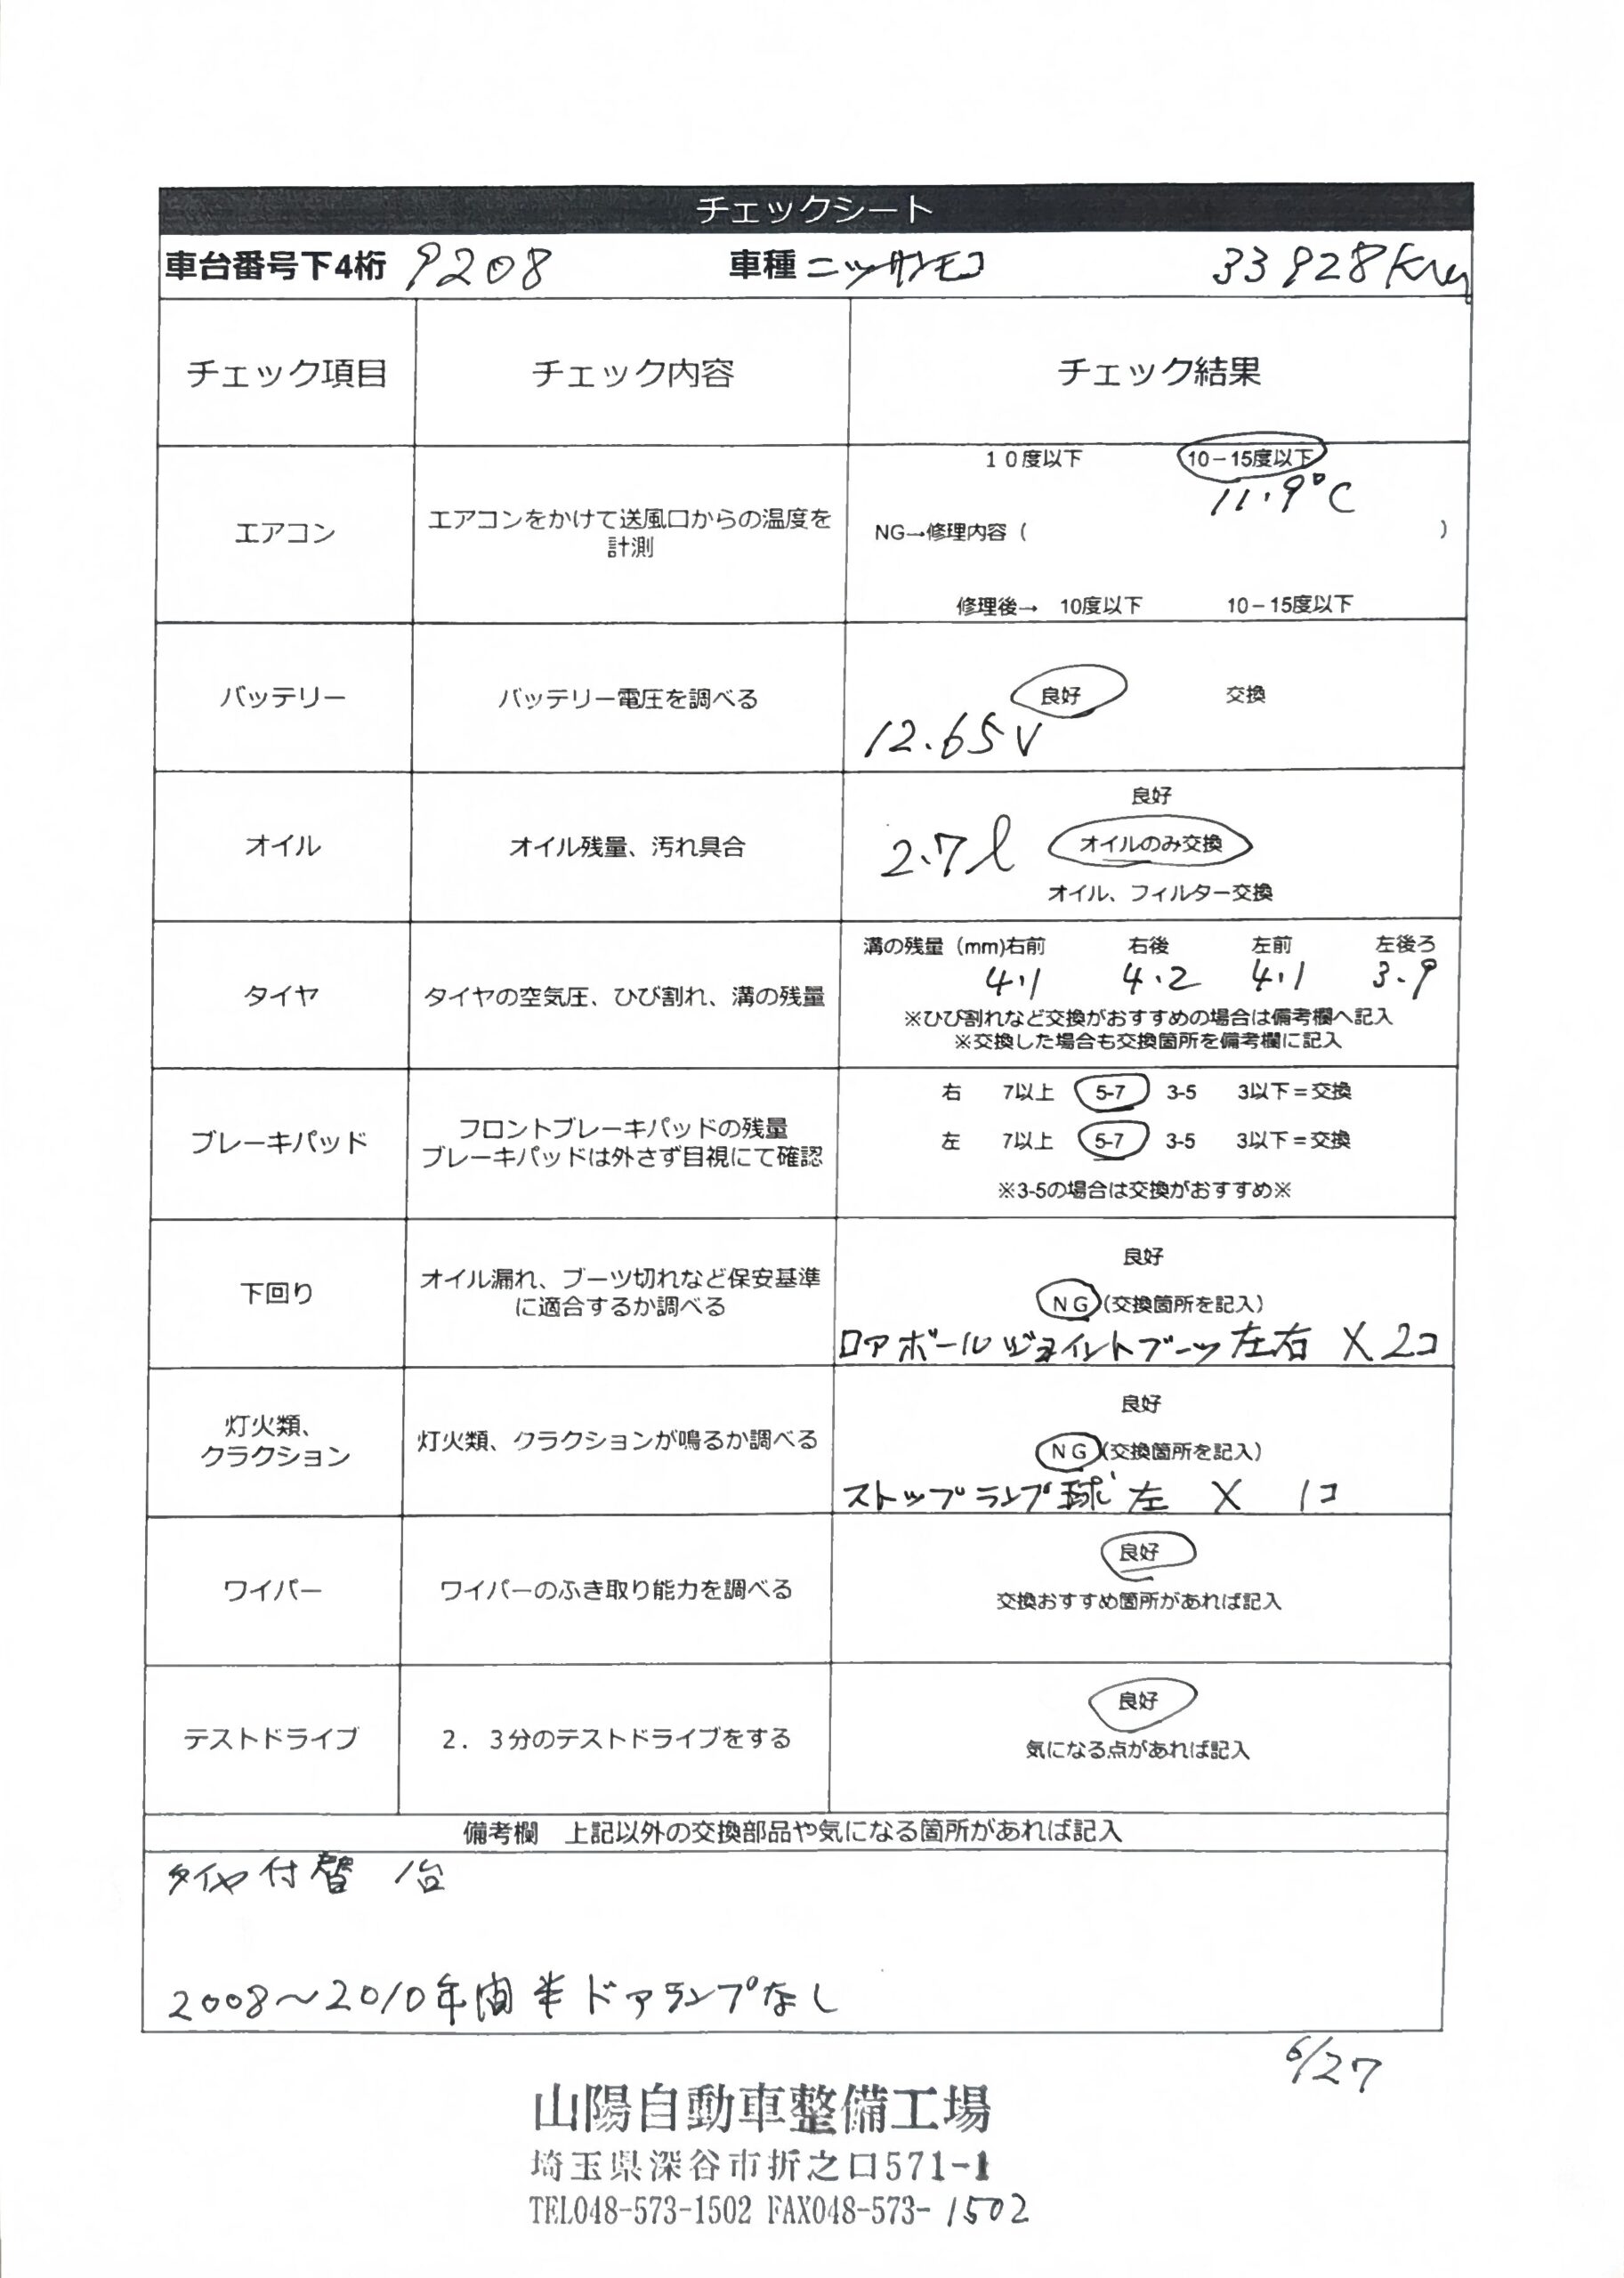 チェックシート
車台番号下4桁 9208 車種 ニッサンモコ 33928Km
チェック項目 チェック内容 チェック結果
10度以下 10−15度以下
11.9°C
エアコン エアコンをかけて送風口からの温度を
計測
NG→修理内容( )
修理後→ 10度以下 10−15度以下
バッテリー バッテリー電圧を調べる 良好 交換
12.65V
良好
オイル オイル残量、汚れ具合 2.7ℓ オイルのみ交換
オイル、フィルター交換
溝の残量(mm)右前 右後 左前 左後ろ
4.1 4.2 4.1 3.9
タイヤ タイヤの空気圧、ひび割れ、溝の残量
※ひび割れなど交換がおすすめの場合は備考欄へ記入
※交換した場合も交換箇所を備考欄に記入
右 7以上 5-7 3-5 3以下=交換
ブレーキパッド フロントブレーキパッドの残量
ブレーキパッドは外さず目視にて確認
左 7以上 5-7 3-5 3以下=交換
※3-5の場合は交換がおすすめ※
良好
下回り オイル漏れ、ブーツ切れなど保安基準
に適合するか調べる
NG(交換箇所を記入)
ロアボールジョイントブーツ左右 X 2コ
良好
灯火類、
クラクション
灯火類、クラクションが鳴るか調べる
NG(交換箇所を記入)
ストップランプ球 左 X 1コ
良好
ワイパー ワイパーのふき取り能力を調べる
交換おすすめ箇所があれば記入
良好
テストドライブ 2.3分のテストドライブをする
気になる点があれば記入
備考欄 上記以外の交換部品や気になる箇所があれば記入
タイヤ付替 1台
2008〜2010年間半ドアランプなし
6/27
山陽自動車整備工場
埼玉県深谷市折之口571-1
TEL048-573-1502 FAX048-573-1502